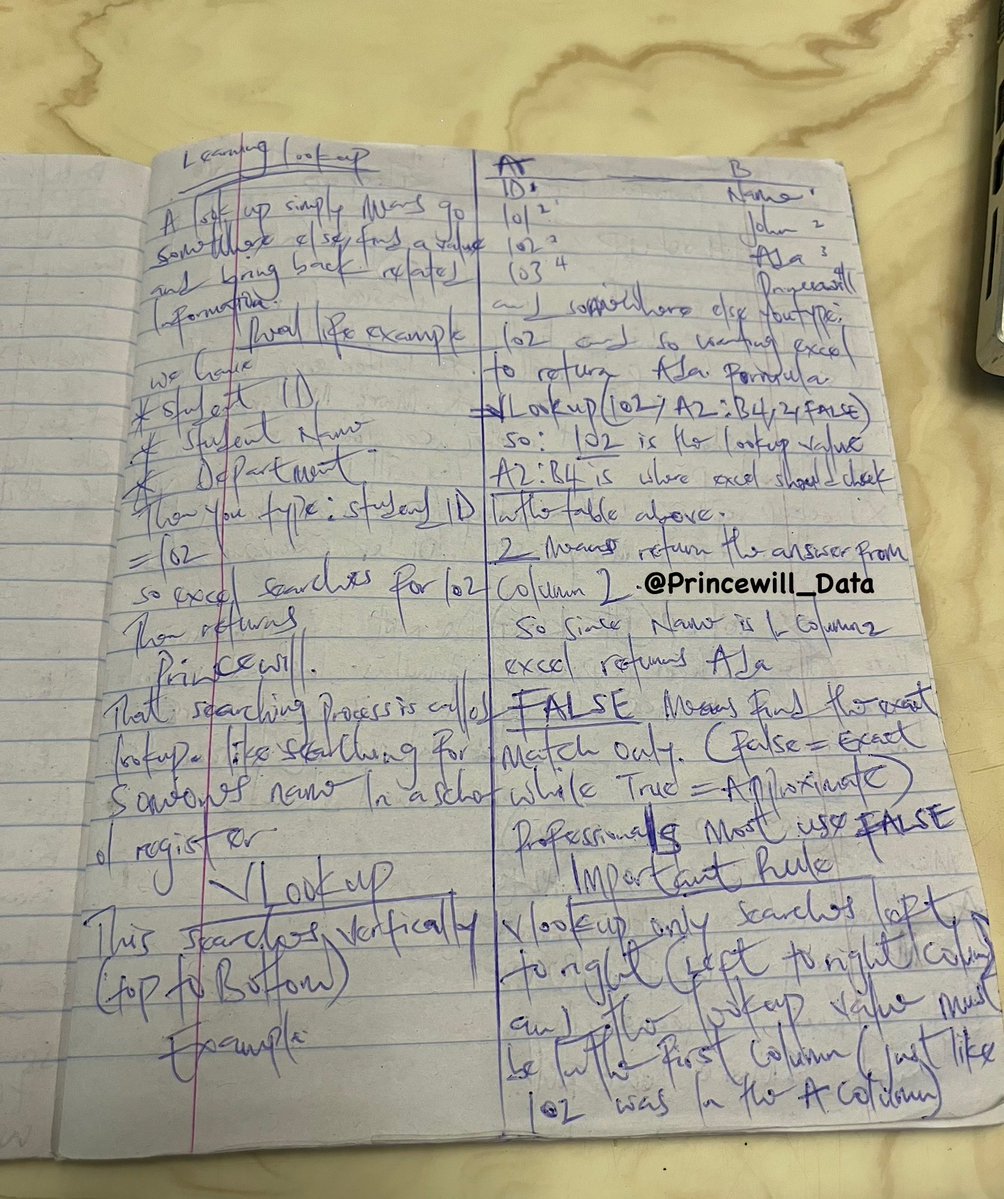 Learning lookup
A look up simply Means go
somewhere else, find a value
and bring back related
Information.
Real life example
we have
* Student ID
* Student Name
* Department
Then you type: Student ID
= 102
so excel searches for 102
Then returns
Princewill.
That searching Process is called
lookup. like searching for
Someones name In a scho
ol register
VLookup
This searches vertically
(top to Bottom)
Example:
A B
ID 1 Name 1
101 2 John 2
102 3 Ada 3
103 4 Princewill 4
and somewhere else you type:
102 and so wanting excel
to return Ada Formula
=VLookup(102, A2:B4, 2, FALSE)
so: 102 is the lookup value
A2:B4 is where excel should check
In the table above.
2 Means return the answer from
Column 2.
@Princewill_Data
So since Name is In Column 2
excel returns Ada
FALSE Means Find the exact
Match only. (False = Exact
while True = Approximate)
Professionals Most use FALSE
Important Rule
Vlookup only searches left
to right (Left to right column)
and the lookup value must
be In the First Column (just like
102 was In the A Column)